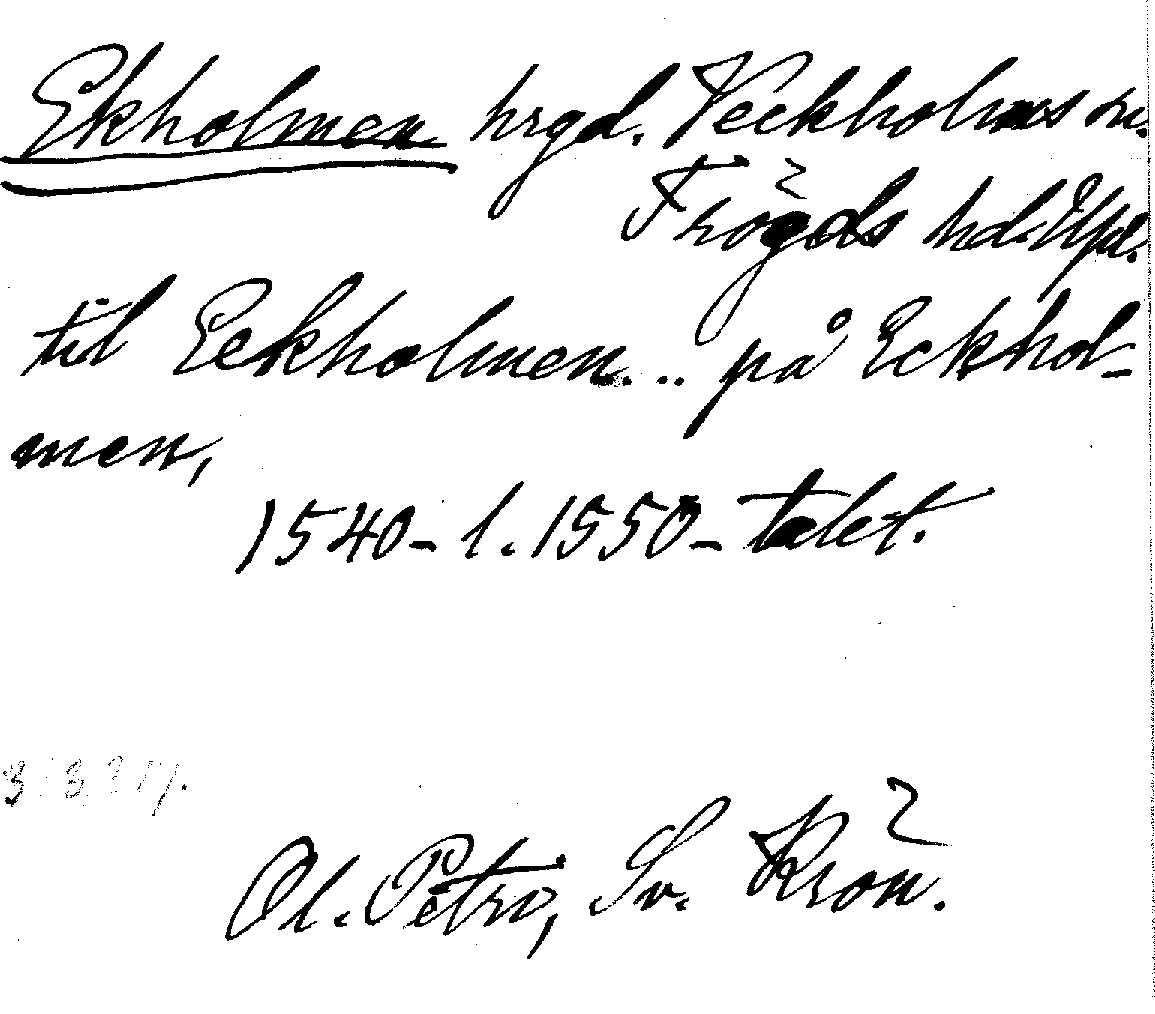 Ekholmen hrgd. Veckholms sn.
Trögds hd. Upl.
til Eckholmen... på Eckhol-
men,
1540- l. 1550-talet.
Ol. Petri, Sv. Krön.